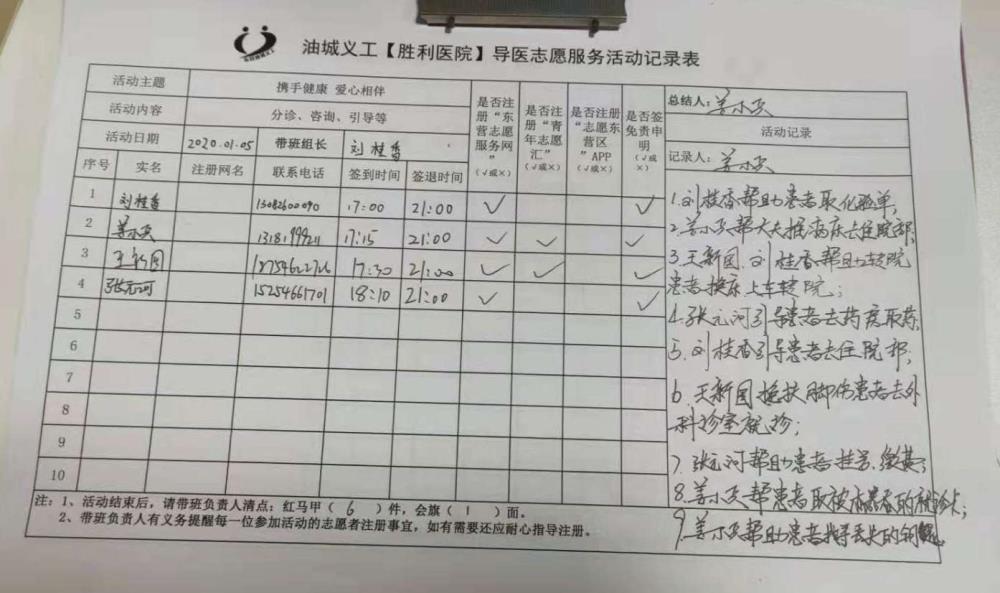 油城义工【胜利医院】导医志愿服务活动记录表
活动主题 携手健康 爱心相伴
活动内容 分诊、咨询、引导等
活动日期 2020.01.05 带班组长 刘桂香
是否注册“东营志愿服务网”（√或×）
是否注册“青年志愿汇”（√或×）
是否注册“志愿东营区”APP（√或×）
是否签免责申明（√或×）
序号 实名 注册网名 联系电话 签到时间 签退时间
1 刘桂香 13082600090 17:00 21:00 √ √
2 姜小英 17:15 21:00 √ √ √
3 王新国 17:30 21:00 √ √ √
4 张元河 15254661701 18:10 21:00 √ √
5
6
7
8
9
10
总结人：姜小英
活动记录
记录人：姜小英
1.刘桂香帮助患者取化验单；
2.姜小英帮大夫推病床去住院部；
3.王新国、刘桂香帮助转院
患者换床上车转院；
4.张元河引导患者去药房取药；
5.刘桂香引导患者去住院部；
6.王新国搀扶脚伤患者去外
科诊室就诊；
7.张元河帮助患者挂号、缴费；
8.姜小英帮患者取被的就诊卡；
9.姜小英帮助患者找寻丢失的钥匙。
注：1、活动结束后，请带班负责人清点：红马甲（6）件，会旗（1）面。
2、带班负责人有义务提醒每一位参加活动的志愿者注册事宜，如有需要还应耐心指导注册。